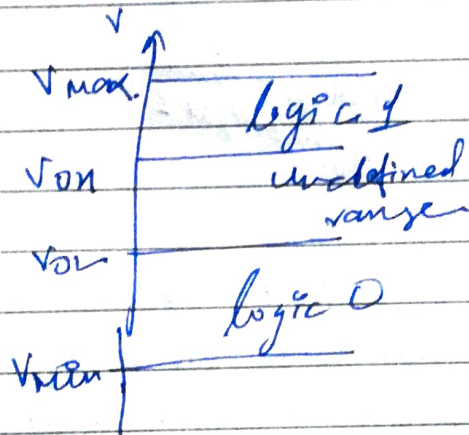 V
Vmax.
logic 1
VOH
undefined
range
VOL
logic 0
Vmin